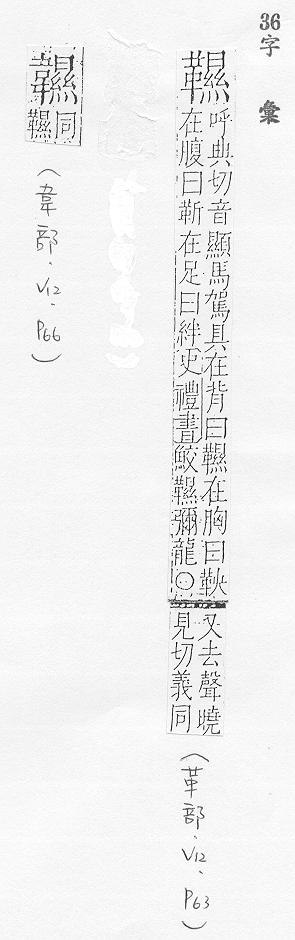 36
字彙
韅
呼典切音顯馬駕具在背曰韅在胸曰鞅
在腹曰靳在足曰絆史禮書鮫韅彌龍○
又去聲曉
見切義同
(革部、V12、P63)
同
韅
(韋部、V12、P66)